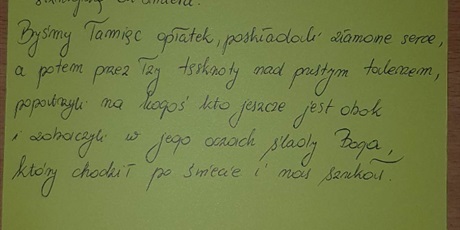 Byśmy łamiąc opłatek, poskładali złamane serce,
a potem przez łzy tęsknoty nad pustym talerzem,
popatrzyli na kogoś kto jeszcze jest obok
i zobaczyli w jego oczach ślady Boga,
który chodził po świecie i nas szukał.